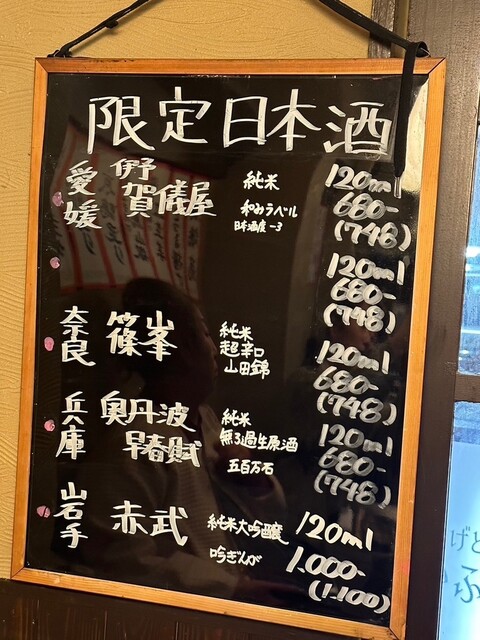 限定日本酒
愛媛 伊野賀儀屋 純米 和みラベル 日本酒度-3 120ml 680- (748)
120ml 680- (748)
奈良 篠峯 純米 超辛口 山田錦 120ml 680- (748)
兵庫 奥丹波 早春賦 純米 無ろ過生原酒 五百万石 120ml 680- (748)
岩手 赤武 純米大吟醸 吟ぎんが 120ml 1,000- (1,100)
げと
ふ